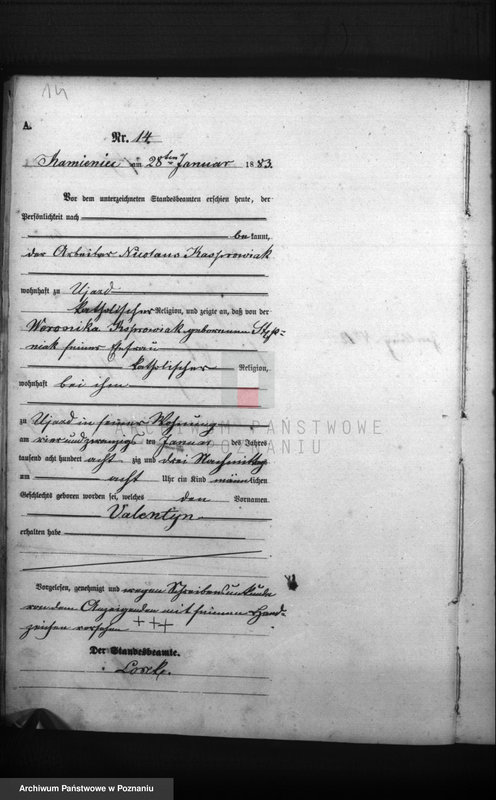 14
A.
Nr. 14.
Kamieniec am 28ten Januar 1883.
Vor dem unterzeichneten Standesbeamten erschien heute, der
Persönlichkeit nach
bekannt,
der Arbeiter Nicolaus Kasprowiak
wohnhaft zu Ujazd
katholischer Religion, und zeigte an, daß von der
Weronika Kasprowiak geborenen
seiner Ehefrau
katholischer Religion,
wohnhaft bei ihm
zu Ujazd in seiner Wohnung
am vierundzwanzigsten Januar des Jahres
tausend acht hundert achtzig und drei Nachmittag
um acht Uhr ein Kind männlichen
Geschlechts geboren worden sei, welches den Vornamen
Valentyn
erhalten habe
Vorgelesen, genehmigt und wegen Schreibensunkunde
von dem Anzeigenden mit seinem Hand-
zeichen versehen +++
Der Standesbeamte.
ARCHIWUM PAŃSTWOWE
W POZNANIU
Archiwum Państwowe w Poznaniu